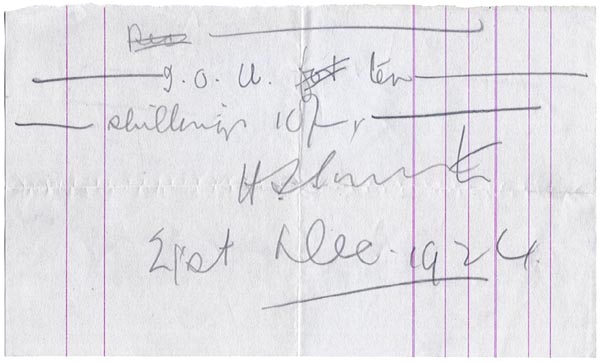 I.O.U. ten
shillings 10/-,
21st Dec. 1924.